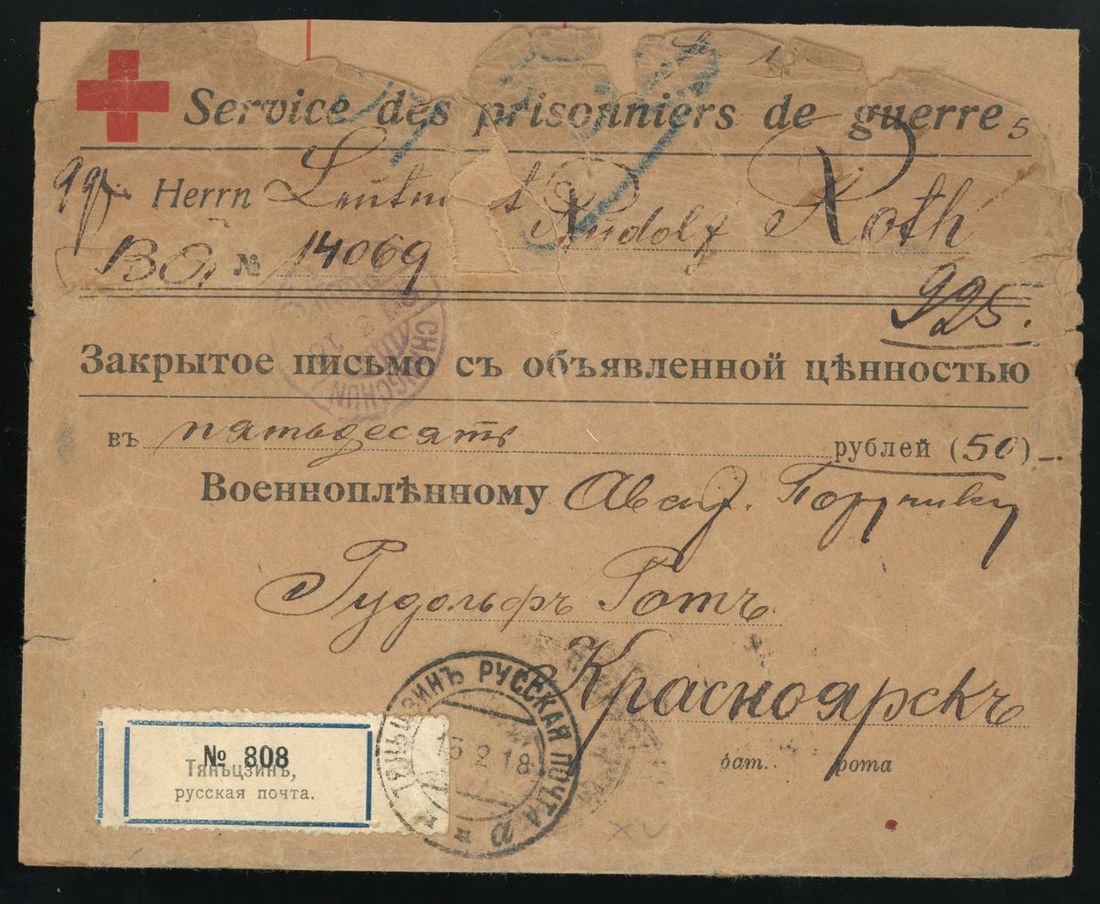 Service des prisonniers de guerre
Herrn Leutnant Rudolf Roth
№ 14069
925.
Закрытое письмо съ объявленной цѣнностью
въ пятьдесятъ рублей (50)
Военноплѣнному Авст. Поручику
Рудольфъ Ротъ
Красноярскъ
бат. рота
№ 808
Тяньцзинъ,
русская почта.
ТЯНЬЦЗИНЪ РУССКАЯ ПОЧТА
2 18